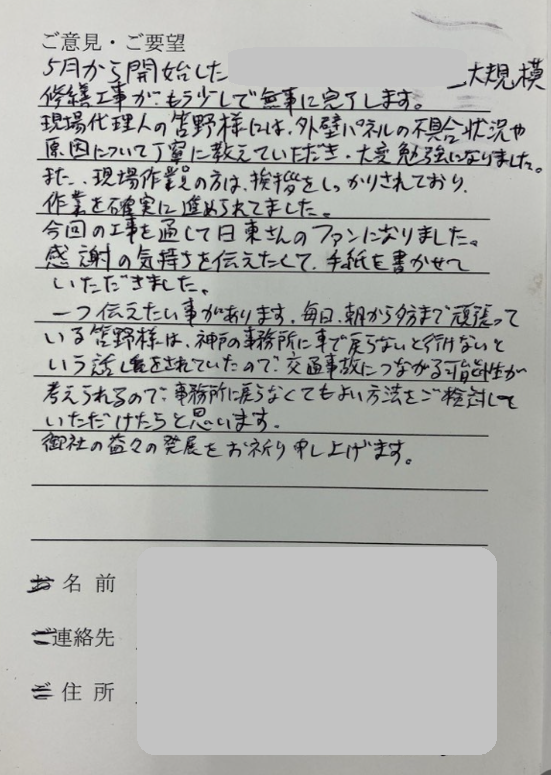 ご意見・ご要望
5月から開始した 大規模
修繕工事が、もう少しで無事に完了します。
現場代理人の笘野様には、外壁パネルの不具合状況や
原因について丁寧に教えていただき、大変勉強になりました。
また、現場作業員の方は、挨拶をしっかりされており、
作業を確実に進められてました。
今回の工事を通して日東さんのファンになりました。
感謝の気持ちを伝えたくて、手紙を書かせて
いただきました。
一つ伝えたい事があります。毎日、朝から夕方まで頑張って
いる笘野様は、神戸の事務所に車で戻らないと行けないと
いう話しをされていたので、交通事故につながる可能性が
考えられるので、事務所に戻らなくてもよい方法をご検討して
いただけたらと思います。
御社の益々の発展をお祈り申し上げます。
お名前
ご連絡先
ご住所